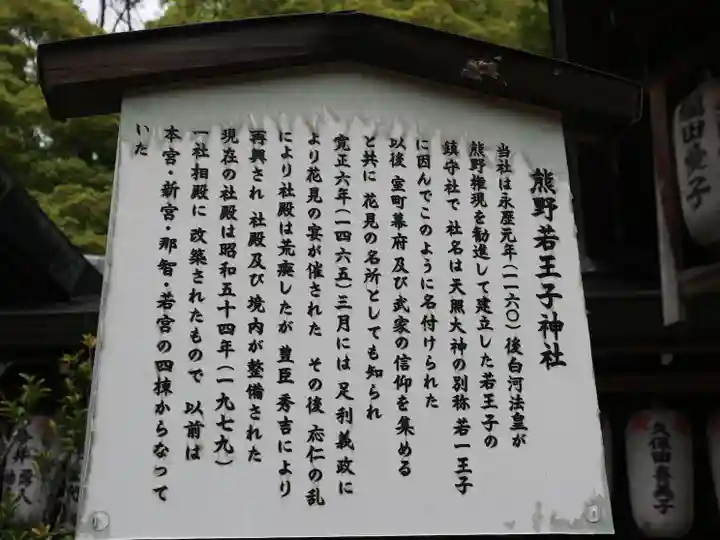 熊野若王子神社
当社は永歴元年(一一六〇)後白河法皇が
熊野権現を勧進して建立した若王子の
鎮守社で 社名は天照大神の別称 若一王子
に因んでこのように名付けられた
以後 室町幕府及び武家の信仰を集める
と共に 花見の名所としても知られ
寛正六年(一四六五)三月には 足利義政に
より花見の宴が催された その後 応仁の乱
により社殿は荒廃したが 豊臣 秀吉により
再興され 社殿及び境内が整備された
現在の社殿は昭和五十四年(一九七九)
一社相殿に 改築されたもので 以前は
本宮・新宮・那智・若宮の四棟からなって
いた